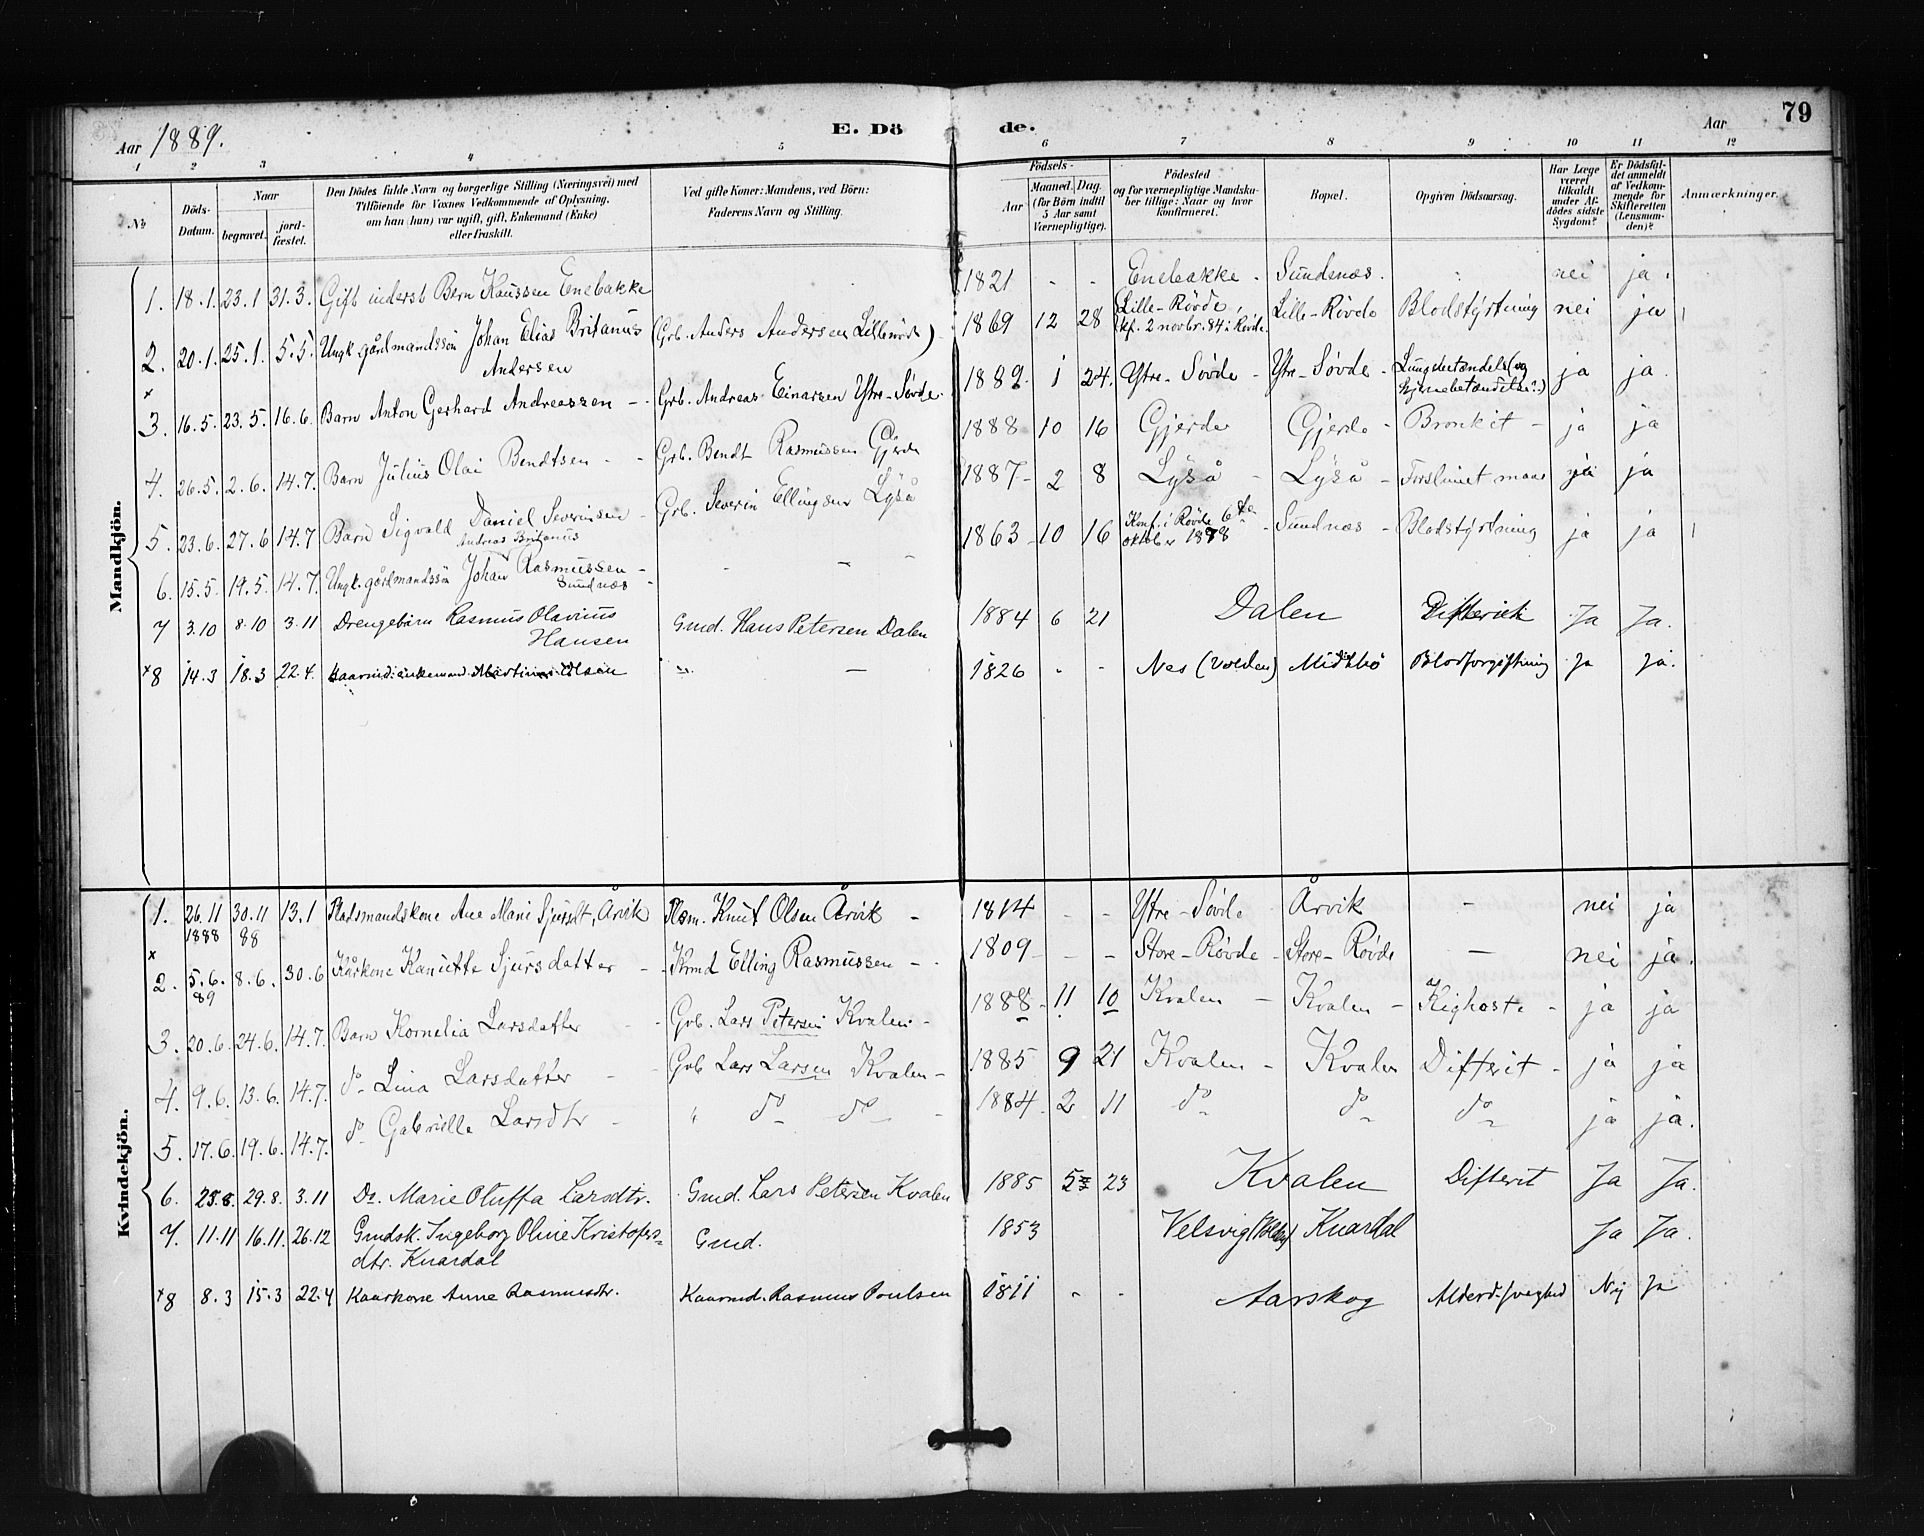 79
Aar 1889.
E. Dö de.
Aar
1 2 3 4 5 6 7 8 9 10 11 12
No
Döds-Datum.
Naar
begravet.
jord-fæstet.
Den Dödes fulde Navn og borgerlige Stilling (Næringsvei) med
Tilföiende for Voxnes Vedkommende af Oplysning,
om han (hun) var ugift, gift, Enkemand (Enke)
eller fraskilt.
Ved gifte Koner: Mandens, ved Börn:
Faderens Navn og Stilling.
Födsels-
Aar
Maaned. Dag.
(for Börn indtil
5 Aar samt
Værnepligtige).
Födested
og for værnepligtige Mandska-
ber tillige: Naar og hvor
konfirmeret.
Bopæl.
Opgiven Dödsaarsag.
Har Læge
været
tilkaldt
under Af-
dödes sidste
Sygdom?
Er Dödsfal-
det anmeldt
af Vedkom-
mende for
Skifteretten
(Lensman-
den)?
Anmærkninger.
Mandkjön.
1. 18.1. 23.1 31.3. Gift inderst Bern Knussen Enebakke 1821 - - Enebakke - Sundnæs. nei ja.
2. 20.1. 25.1. 5.5. Ungk. gårdmandssön Johan Elias Britanus (Grb. Anders Andersen Lillerövde) 1869 12 28 Lille-Rövde, Lille-Rövde Blodstyrtning nei ja
Andersen
kf. 2 novbr. 84 i Rövde.
x
3. 16.5. 23.5. 16.6. Barn Anton Gerhard Andreassen - Grb. Andreas Einarsen Ytre-Søvde. 1889. 1 24. Ytre-Søvde - Ytre-Søvde - Lungebetændels (og ja ja.
hjernebetændelse?)
4. 26.5. 2.6. 14.7. Barn Julius Olai Bendtsen - - Grb. Bendt Rasmussen Gjerde 1888 10 16 Gjerde Gjerde - Bronkit - ja ja
5. 23.6. 27.6 14.7 Barn Sigvald Daniel Severinsen - Grb. Severin Ellingsen Lyså 1887- 2 8 Lyså - Lyså - Forslimet mave ja ja
Andreas Britanus
6. 15.5. 19.5. 14.7. Ungk. gårdmandssön Johan Rasmussen - - - 1863 - 10 16 Konf. i Rövde 6te - Sundnæs - Blodstyrtning ja ja
Sundnæs -
oktober 1878
7 3.10 8.10 3.11 Drengebarn Rasmus Olavius Gmd. Hans Petersen Dalen 1884 6 21 Dalen Difterit Ja Ja.
Hansen
x8 14.3 18.3 22.4. Kaarmd. enkemand Martinus Olsen " - 1826 - - Nes (Volden) Midtbø Blodforgiftning Ja Ja.
Kvindekjön.
1. 26.11 30.11 13.1 Pladsmandskone Ane Marie Sjursdt, Årvik Plsm. Knut Olsen Årvik - 1814 - - Ytre-Søvde Årvik - nei ja
1888 88
x
2. 5.6. 8.6. 30.6 Kårkone Kanutte Sjursdatter - Krmd Elling Rasmussen - 1809 - - Store-Rövde - Store-Rövde - nei ja.
89
3. 20.6. 24.6. 14.7. Barn Kornelia Larsdatter - Grb. Lars Petersen Kvalen - 1888 - 11 10 Kvalen - Kvalen - Kighoste - ja ja
4. 9.6. 13.6. 14.7. do Lina Larsdatter - Grb Lars Larsen Kvalen - 1885 9 21 Kvalen - Kvalen Difterit - ja ja
5. 17.6. 19.6. 14.7. do Gabrielle Larsdtr - " do do - 1884. 2 11 do do do ja ja.
6. 23.8. 29.8. 3.11 Do. Marie Oluffa Larsdtr. Gmd. Lars Petersen Kvalen 1885 5 23 Kvalen Difterit Ja Ja.
7. 11.11 16.11. 26.12 Gmdsk. Ingeborg Oline Kristofers- Gmd. 1853 Velsvig (Volden) Knardal Ja Ja.
dtr. Knardal
x8 8.3 15.3 22.4 Kaarkone Anne Rasmusdtr. Kaarmd. Rasmus Poulsen 1811 - - Aarskog Alderd.svaghed Nei Ja